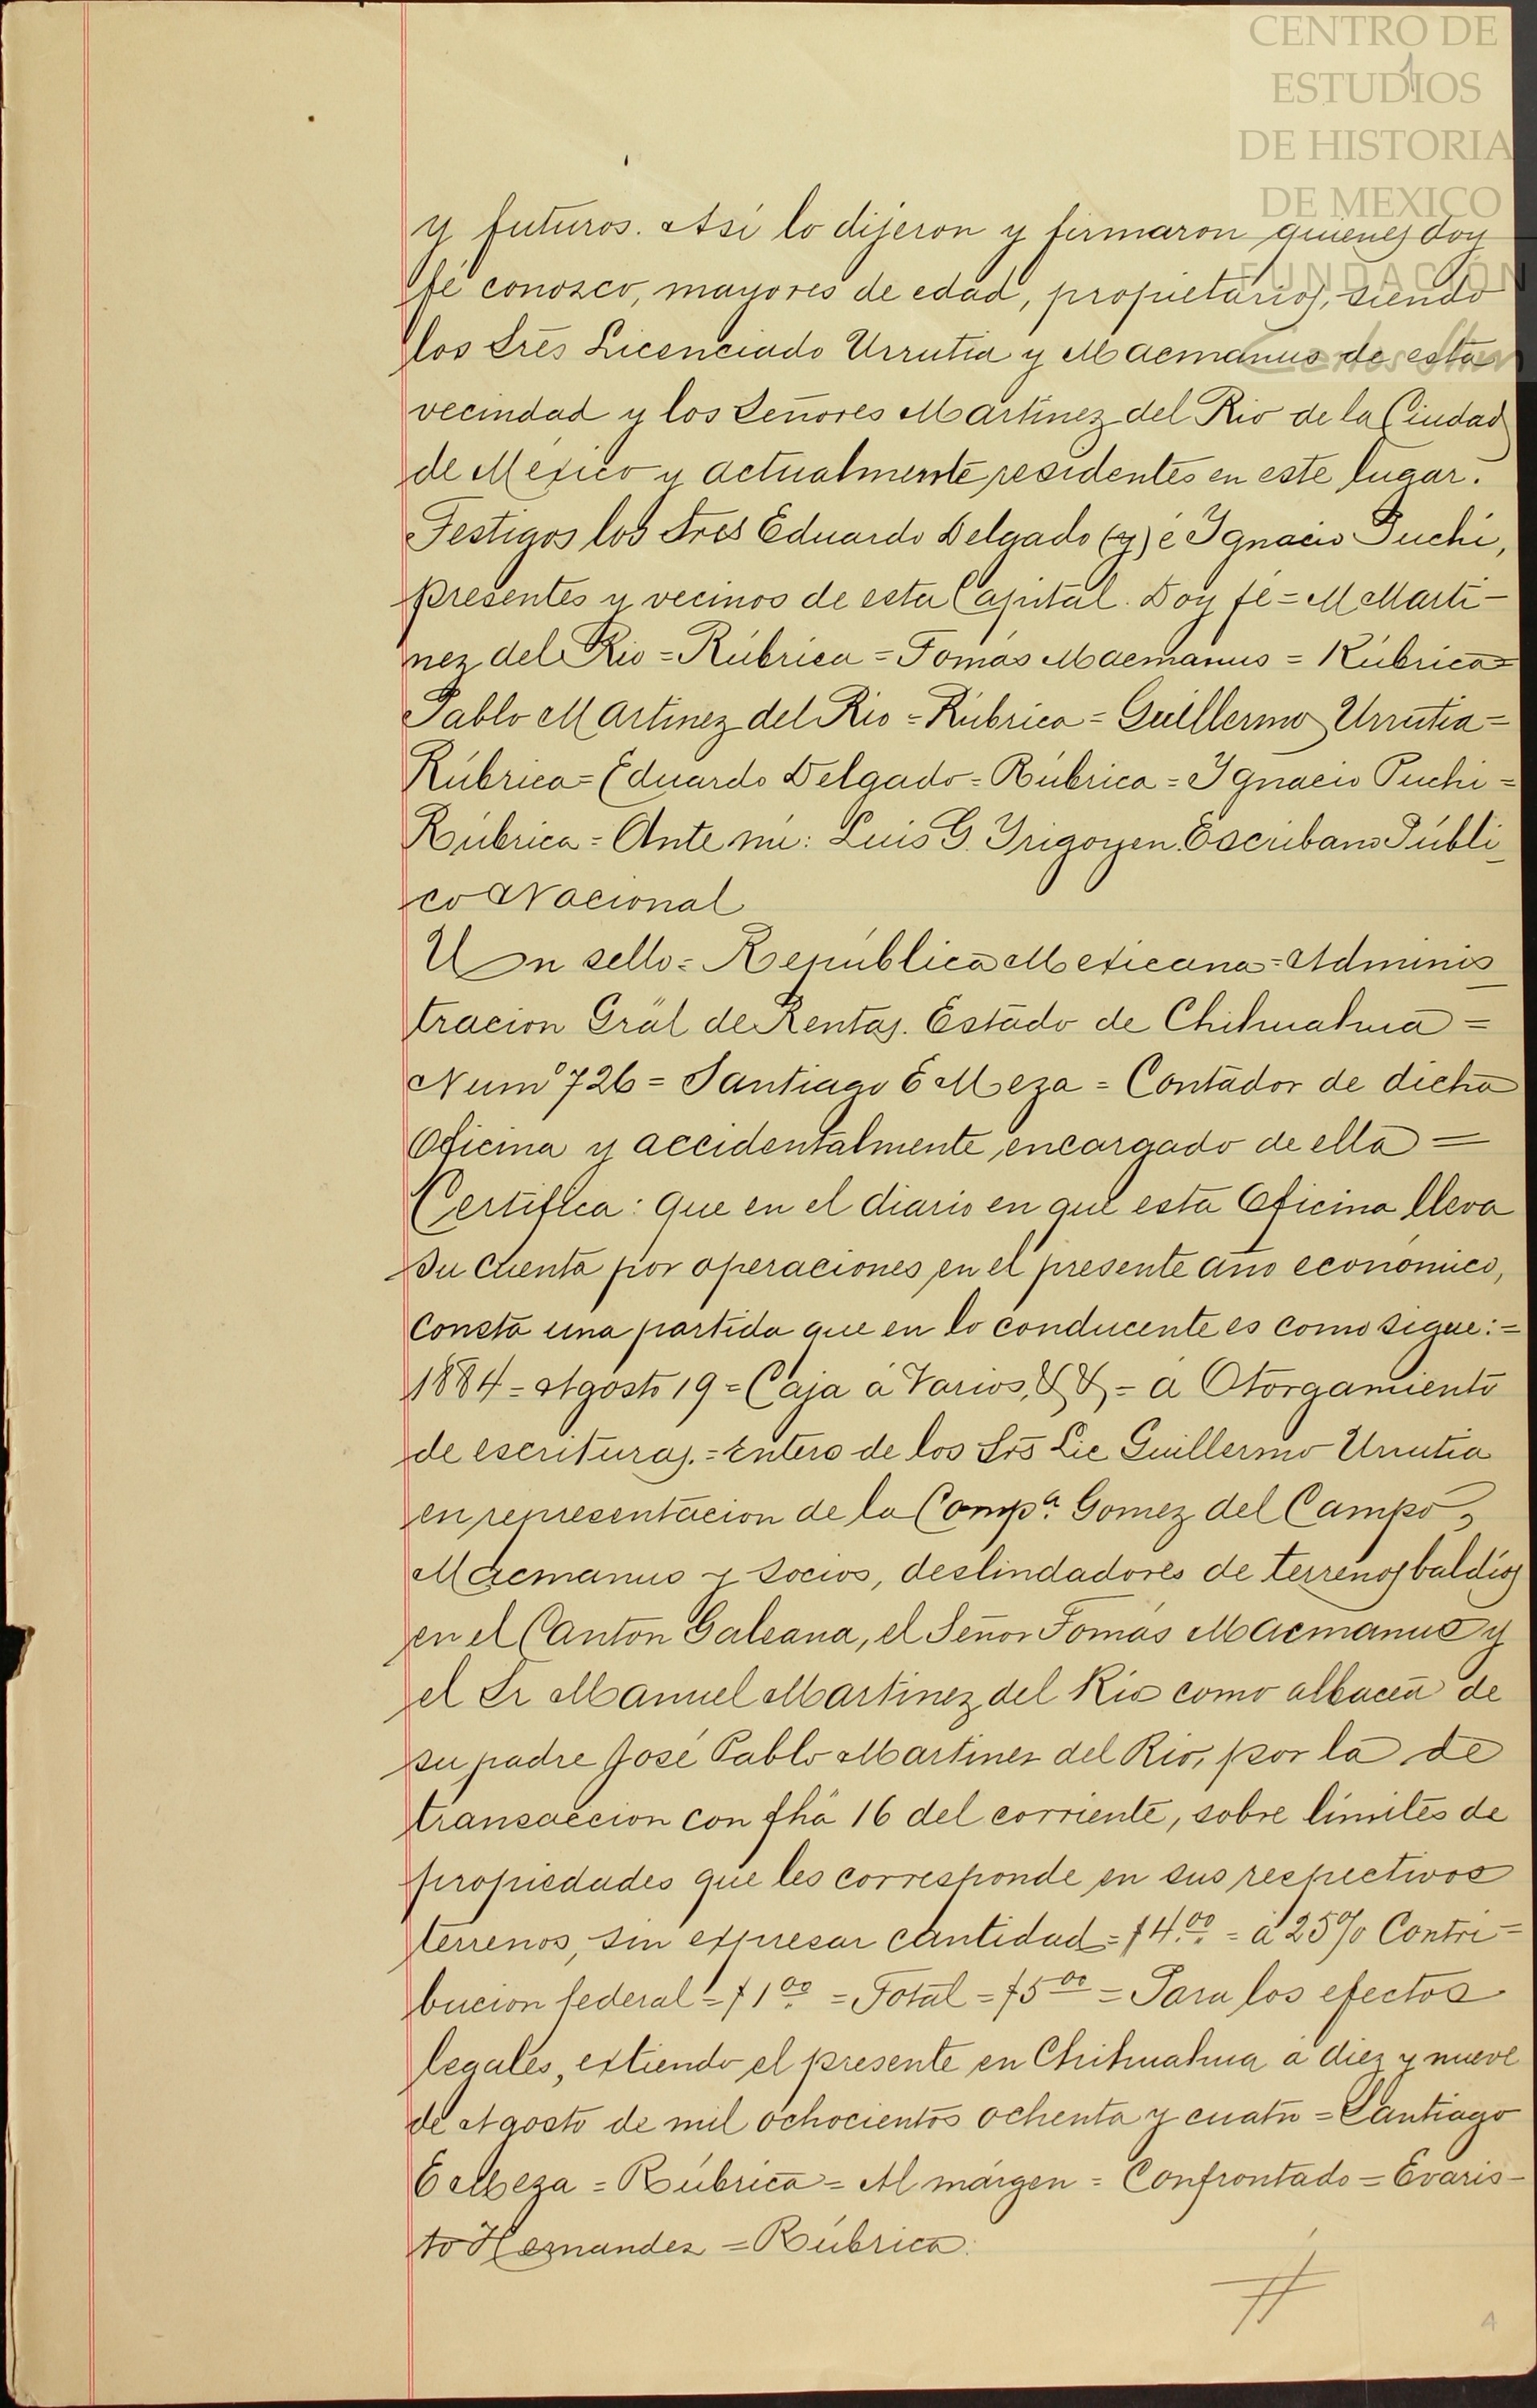 CENTRO DE
ESTUDIOS
DE HISTORIA
DE MEXICO
FUNDACIÓN
y futuros. Asi lo dijeron y firmaron quienes doy
fé conozco, mayores de edad, propietarios, siendo
los Sres Licenciado Urrutia y Macmanus de esta
vecindad y los Señores Martinez del Rio de la Ciudad
de México y actualmente residentes en este lugar.
Testigos los Sres Eduardo Delgado (y) é Ignacio Puchi,
presentes y vecinos de esta Capital. Doy fé = M Marti-
nez del Rio = Rúbrica = Tomás Macmanus = Rúbrica =
Pablo Martinez del Rio = Rúbrica = Guillermo Urrutia =
Rúbrica = Eduardo Delgado = Rúbrica = Ignacio Puchi =
Rúbrica = Ante mi: Luis G. Yrigoyen. Escribano Públi-
co Nacional
Un sello = República Mexicana = Adminis
tracion Grål de Rentas. Estado de Chihuahua =
Num° 726 = Santiago E Meza = Contador de dicha
Oficina y accidentalmente encargado de ella =
Certifica: que en el diario en que esta Oficina lleva
su cuenta por operaciones en el presente año económico,
consta una partida que en lo conducente es como sigue: =
1884 = Agosto 19 = Caja á Varios, & & = á Otorgamiento
de escrituras. = Entero de los Srs Lic Guillermo Urrutia
en representacion de la Comp.ª Gomez del Campo,
Macmanus y socios, deslindadores de terrenos baldíos
en el Canton Galeana, el Señor Tomás Macmanus y
el Sr Manuel Martinez del Rio como albacea de
su padre José Pablo Martinez del Rio, por la de
transaccion con fhä 16 del corriente, sobre límites de
propiedades que les corresponde en sus respectivos
terrenos, sin expresar cantidad = $4.00 = á 25% Contri=
bucion federal = $1.00 = Total = $5 00 = Para los efectos
legales, extiendo el presente en Chihuahua á diez y nueve
de Agosto de mil ochocientos ochenta y cuatro = Santiago
E Meza = Rúbrica = Al márgen = Confrontado = Evaris-
to Hernandez = Rúbrica.
4